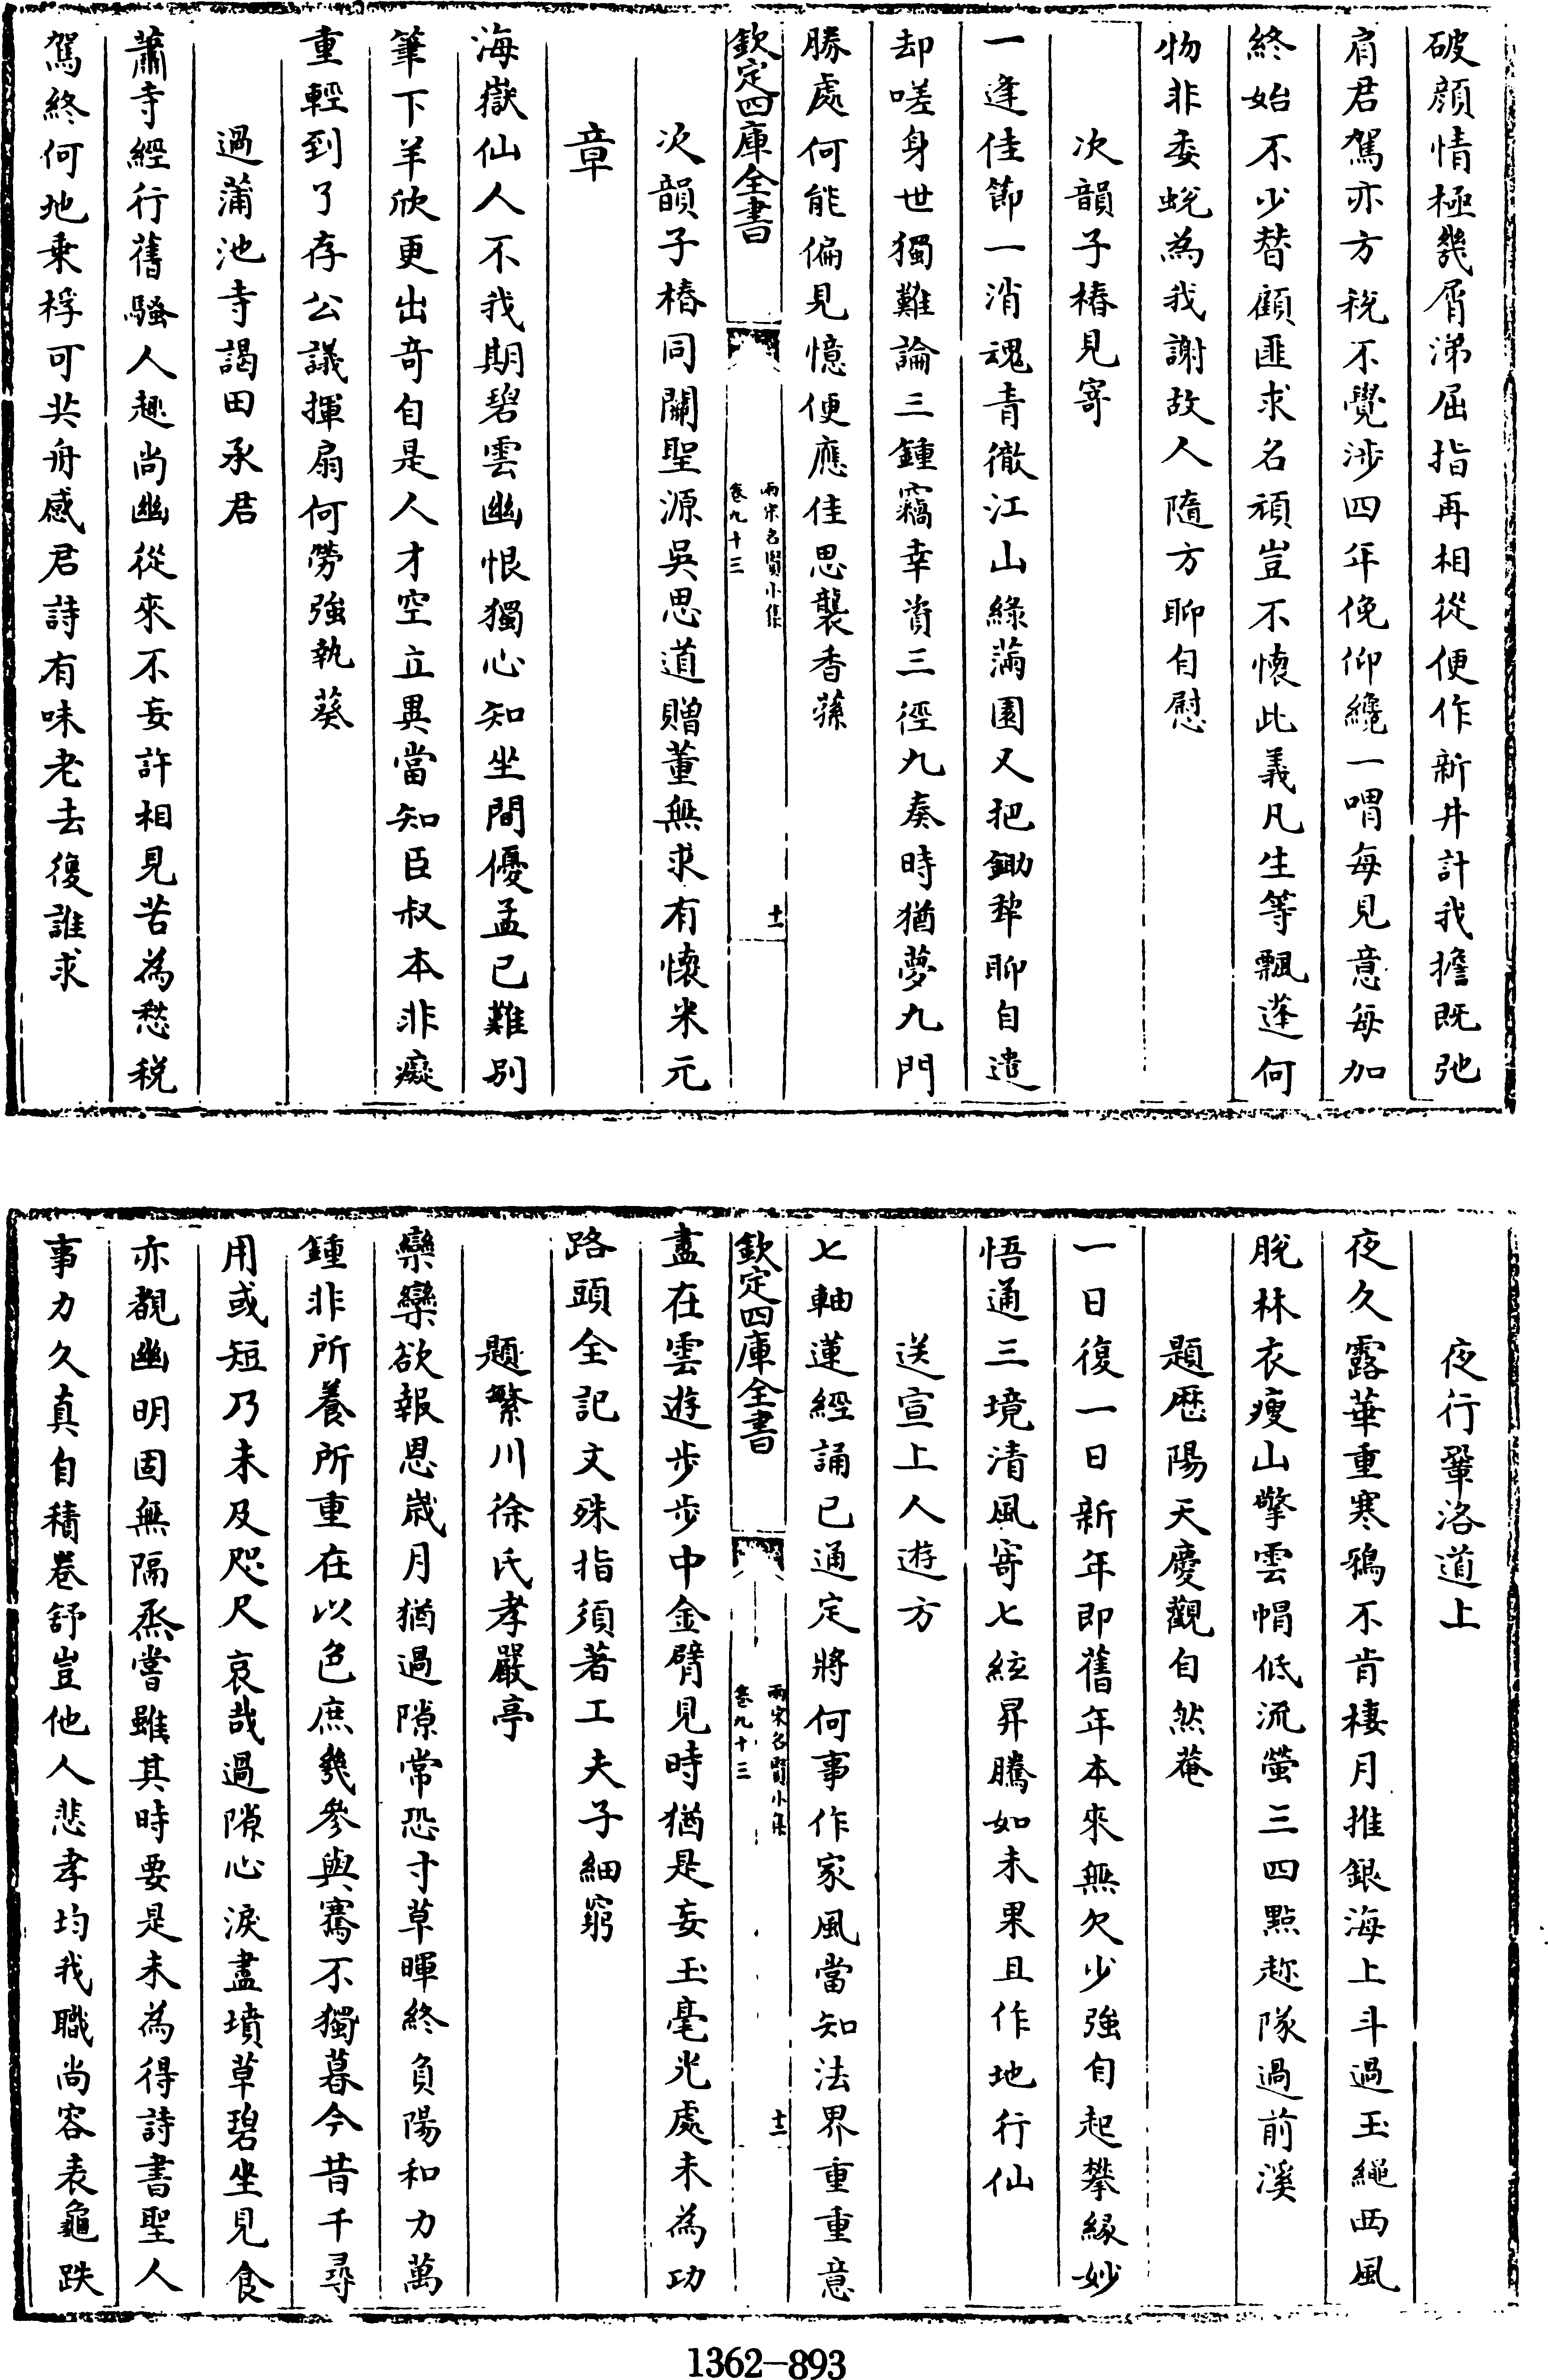 破顔情極幾屑涕屈指再相從便作新井計我擔既弛
肩君駕亦方税不覺涉四年俛仰纔一喟每見意每加
終始不少替顧匪求名頑豈不懐此義凡生等飄蓬何
物非委蛻為我謝故人隨方聊自慰
次韻子椿見寄
一逢佳節一消魂青徹江山綠滿園又把鋤犂聊自遣
却嗟身世獨難論三鍾竊幸資三徑九奏時猶夢九門
勝處何能偏見憶便應佳思襲香蓀
欽定四庫全書
兩宋名賢小集
卷九十三
十一
次韻子椿同關聖源吳思道贈董無求有懷米元
章
海嶽仙人不我期碧雲幽恨獨心知坐間優孟已難别
筆下羊欣更出竒自是人才空立異當知臣叔本非癡
重輕到了存公議揮扇何勞強執葵
過蒲池寺謁田承君
蕭寺經行舊騷人趣尚幽從來不妄許相見苦為愁税
駕終何地乗桴可共舟感君詩有味老去復誰求
夜行鞏洛道上
夜久露華重寒鴉不肯棲月推銀海上斗過玉繩西風
脫林衣瘦山擎雲帽低流螢三四點趂隊過前溪
題厯陽天慶觀自然菴
一日復一日新年即舊年本來無欠少強自起攀緣妙
悟通三境清風寄七絃昇騰如未果且作地行仙
送宣上人遊方
七軸蓮經誦已通定將何事作家風當知法界重重意
欽定四庫全書
兩宋名賢小集
卷九十三
十二
盡在雲遊步步中金臂見時猶是妄玉毫光處未為功
路頭全記文殊指須著工夫子細窮
題繁川徐氏孝嚴亭
欒欒欲報恩歲月猶過隙常恐寸草暉終負陽和力萬
鍾非所養所重在以色庶幾參與騫不獨暮今昔千尋
用或短乃未及咫尺哀哉過隙心淚盡墳草碧坐見食
亦覩幽明固無隔烝嘗雖其時要是未為得詩書聖人
事力久真自積卷舒豈他人悲孝均我職尚容表龜趺
1362-893